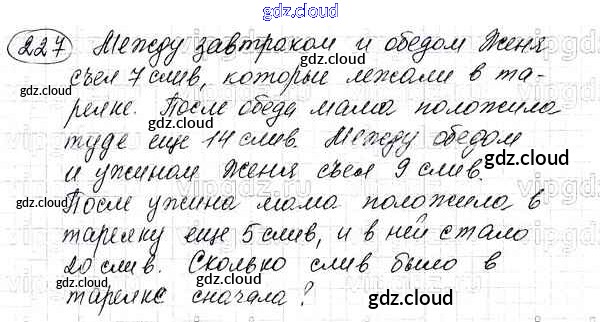 gdz.cloud
227 Между завтраком и обедом Женя
съел 7 слив, которые лежали в та-
gdz.cloud gdz.cloud
релке. После обеда мама положила
туда еще 14 слив. Между обедом
gdz.cloud
и ужином Женя съел 9 слив.
gdz.cloud
После ужина мама положила в
тарелку еще 5 слив, и в ней стало
20 слив. Сколько слив было в
gdz.cloud gdz.cloud
тарелке сначала?
gdz.cloud